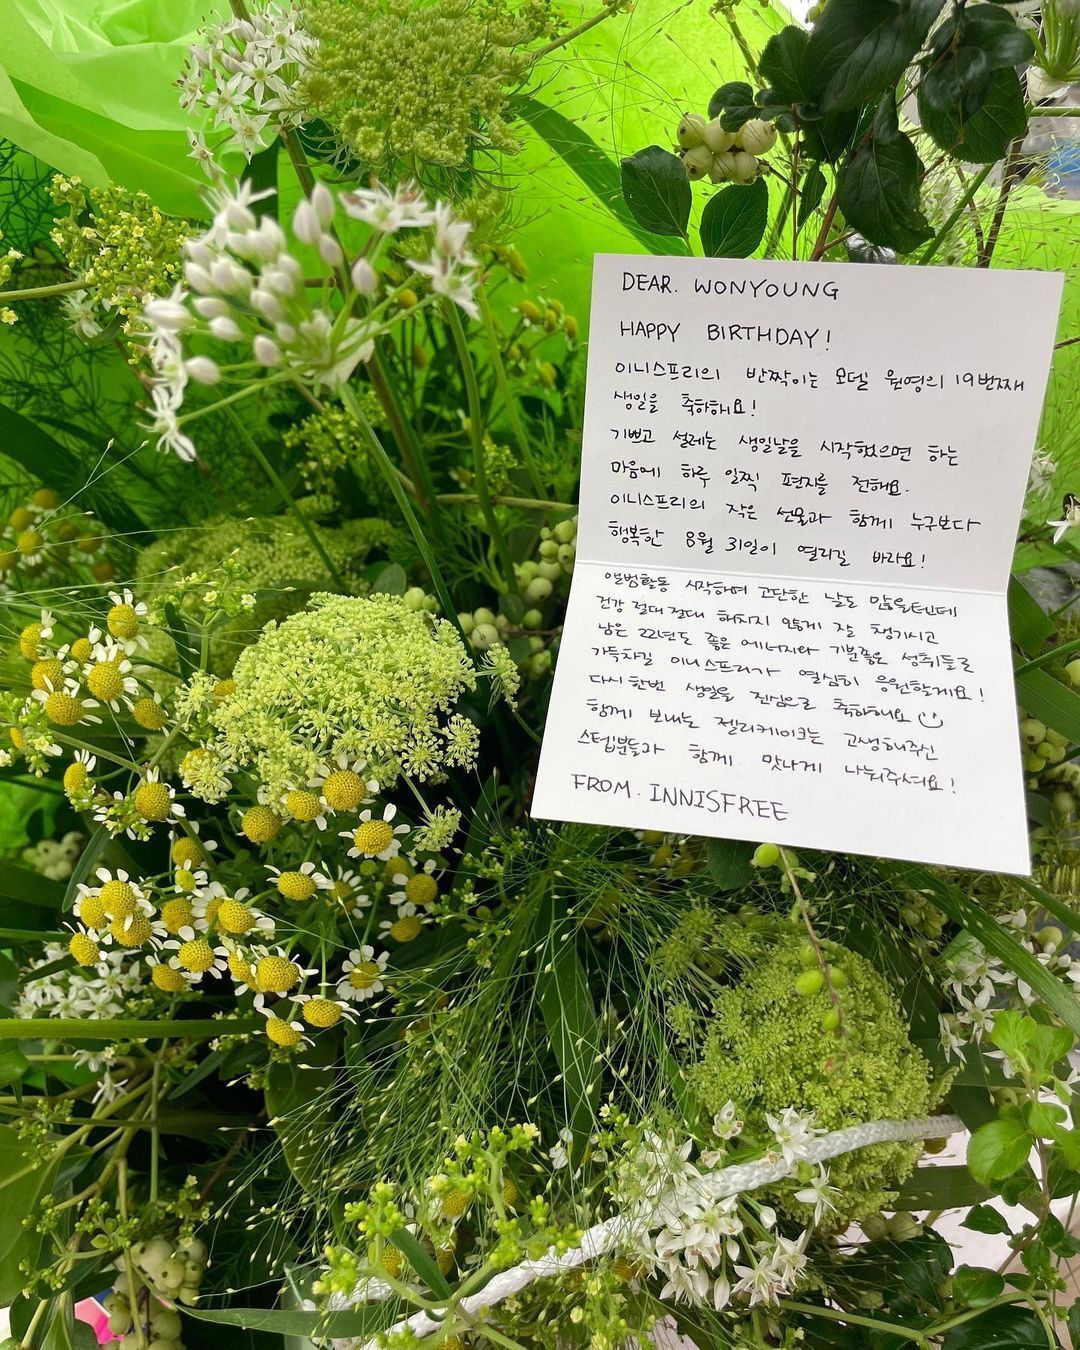 DEAR. WONYOUNG
HAPPY BIRTHDAY!
이니스프리의 반짝이는 모델 원영의 19번째
생일을 축하해요!
기쁘고 설레는 생일날을 시작했으면 하는
마음에 하루 일찍 편지를 전해요.
이니스프리의 작은 선물과 함께 누구보다
행복한 8월 31일이 열리길 바라요!
앨범활동 시작하며 고단한 날도 많을텐데
건강 절대 절대 해치지 않게 잘 챙기시고
남은 22년도 좋은 에너지와 기분좋은 성취들로
가득차길 이니스프리가 열심히 응원할게요!
다시 한번 생일을 진심으로 축하해요
함께 보내는 젤리케이크는 고생해주신
스텝분들과 함께 맛나게 나눠주셔요!
FROM. INNISFREE